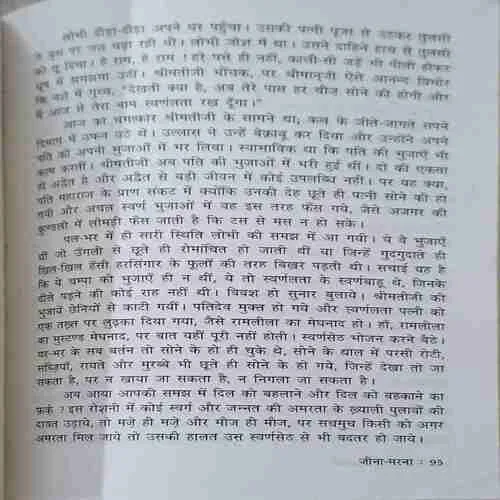 लोभी दौड़ा-दौड़ा अपने घर पहुँचा। उसकी पत्नी पूजा से उठकर तुलसी
के वृक्ष पर जल चढ़ा रही थी। लोभी जोश में था। उसने दाहिने हाथ से तुलसी
को छू दिया। हे राम, हे राम! हरे पत्ते ही नहीं, काली-सी जड़ें भी पीली होकर
धूप में झमझमा उठीं। श्रीमतीजी भौंचक, पर श्रीमानजी ऐसे आनन्द विभोर
कि नशे में गुच्च, "देखती क्या है, अब तेरे पास हर चीज सोने की होगी और
मैं आज से तेरा नाम स्वर्णलता रख दूँगा।"
आज का चमत्कार श्रीमतीजी के सामने था; कल के जीते-जागते सपने
दिमाग में उफन उठे थे। उल्लास ने उन्हें बेक़ाबू कर दिया और उन्होंने अपने
पति को अपनी भुजाओं में भर लिया। स्वाभाविक था कि पति की भुजाएँ भी
काम करतीं। श्रीमतीजी अब पति की भुजाओं में भरी हुई थीं। दो की एकता
ही अद्वैत है और अद्वैत से बड़ी जीवन में कोई उपलब्धि नहीं। पर यह क्या,
पति महाराज के प्राण संकट में क्योंकि उनकी देह छूते ही पत्नी सोने की हो
गयी और अचल स्वर्ण भुजाओं में वह इस तरह फँस गये, जैसे अजगर की
कुण्डली में लोमड़ी फँस जाती है कि टस से मस न हो सके।
पल-भर में ही सारी स्थिति लोभी की समझ में आ गयी। ये वे भुजाएँ
थीं जो उँगली से छूते ही रोमांचित हो जाती थीं या जिन्हें गुदगुदाते ही
खिल-खिल हँसी हरसिंगार के फूलों की तरह बिखर पड़ती थी। सचाई यह है
कि ये चम्पा की भुजाएँ ही न थीं, ये तो स्वर्णलता के स्वर्णबाहु थे, जिनके
ढीले पड़ने की कोई राह नहीं थी। विवश हो सुनार बुलाये। श्रीमतीजी की
भुजायें छेनियों से काटी गयीं। पतिदेव मुक्त हो गये और स्वर्णलता पत्नी को
एक तख़्त पर लुढ़का दिया गया, जैसे रामलीला का मेघनाद हो। हाँ, रामलीला
का मुस्टण्ड मेघनाद, पर बात यहीं पूरी नहीं होती। स्वर्णसेठ भोजन करने बैठे।
घर-भर के सब बर्तन तो सोने के हो ही चुके थे, सोने के थाल में परसी रोटी,
सब्ज़ियाँ, रायते और मुरब्बे भी छूते ही सोने के हो गये, जिन्हें देखा तो जा
सकता है, पर न खाया जा सकता है, न निगला जा सकता है।
अब आया आपकी समझ में दिल को बहलाने और दिल को बहकाने का
फ़र्क़? इस रोशनी में कोई स्वर्ग और जन्नत की अमरता के ख़्याली पुलावों की
दावत उड़ाये, तो मज़े ही मज़े और मौज ही मौज, पर सचमुच किसी को अगर
अमरता मिल जाये तो उसकी हालत उस स्वर्णसेठ से भी बदतर हो जाये।
जीना-मरना : 95